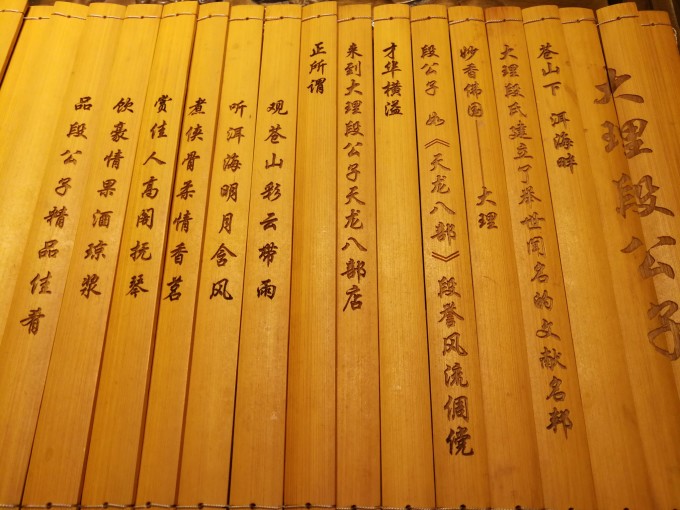 大理段公子
苍山下 洱海畔
大理段氏建立了举世闻名的文献名邦
妙香佛国——大理
段公子 如《天龙八部》段誉风流倜傥
才华横溢
来到大理段公子天龙八部店
正所谓
观苍山彩云带雨
听洱海明月含风
煮侠骨柔情香茗
赏佳人高阁抚琴
饮豪情果酒琼浆
品段公子精品佳肴